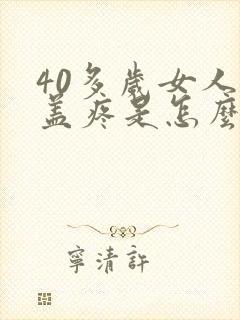 40多歲女人
蓋疼是怎麼
寧清許